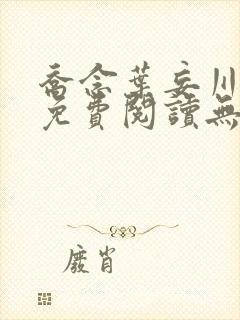 喬念葉妄川
免費閱讀無
廢肖